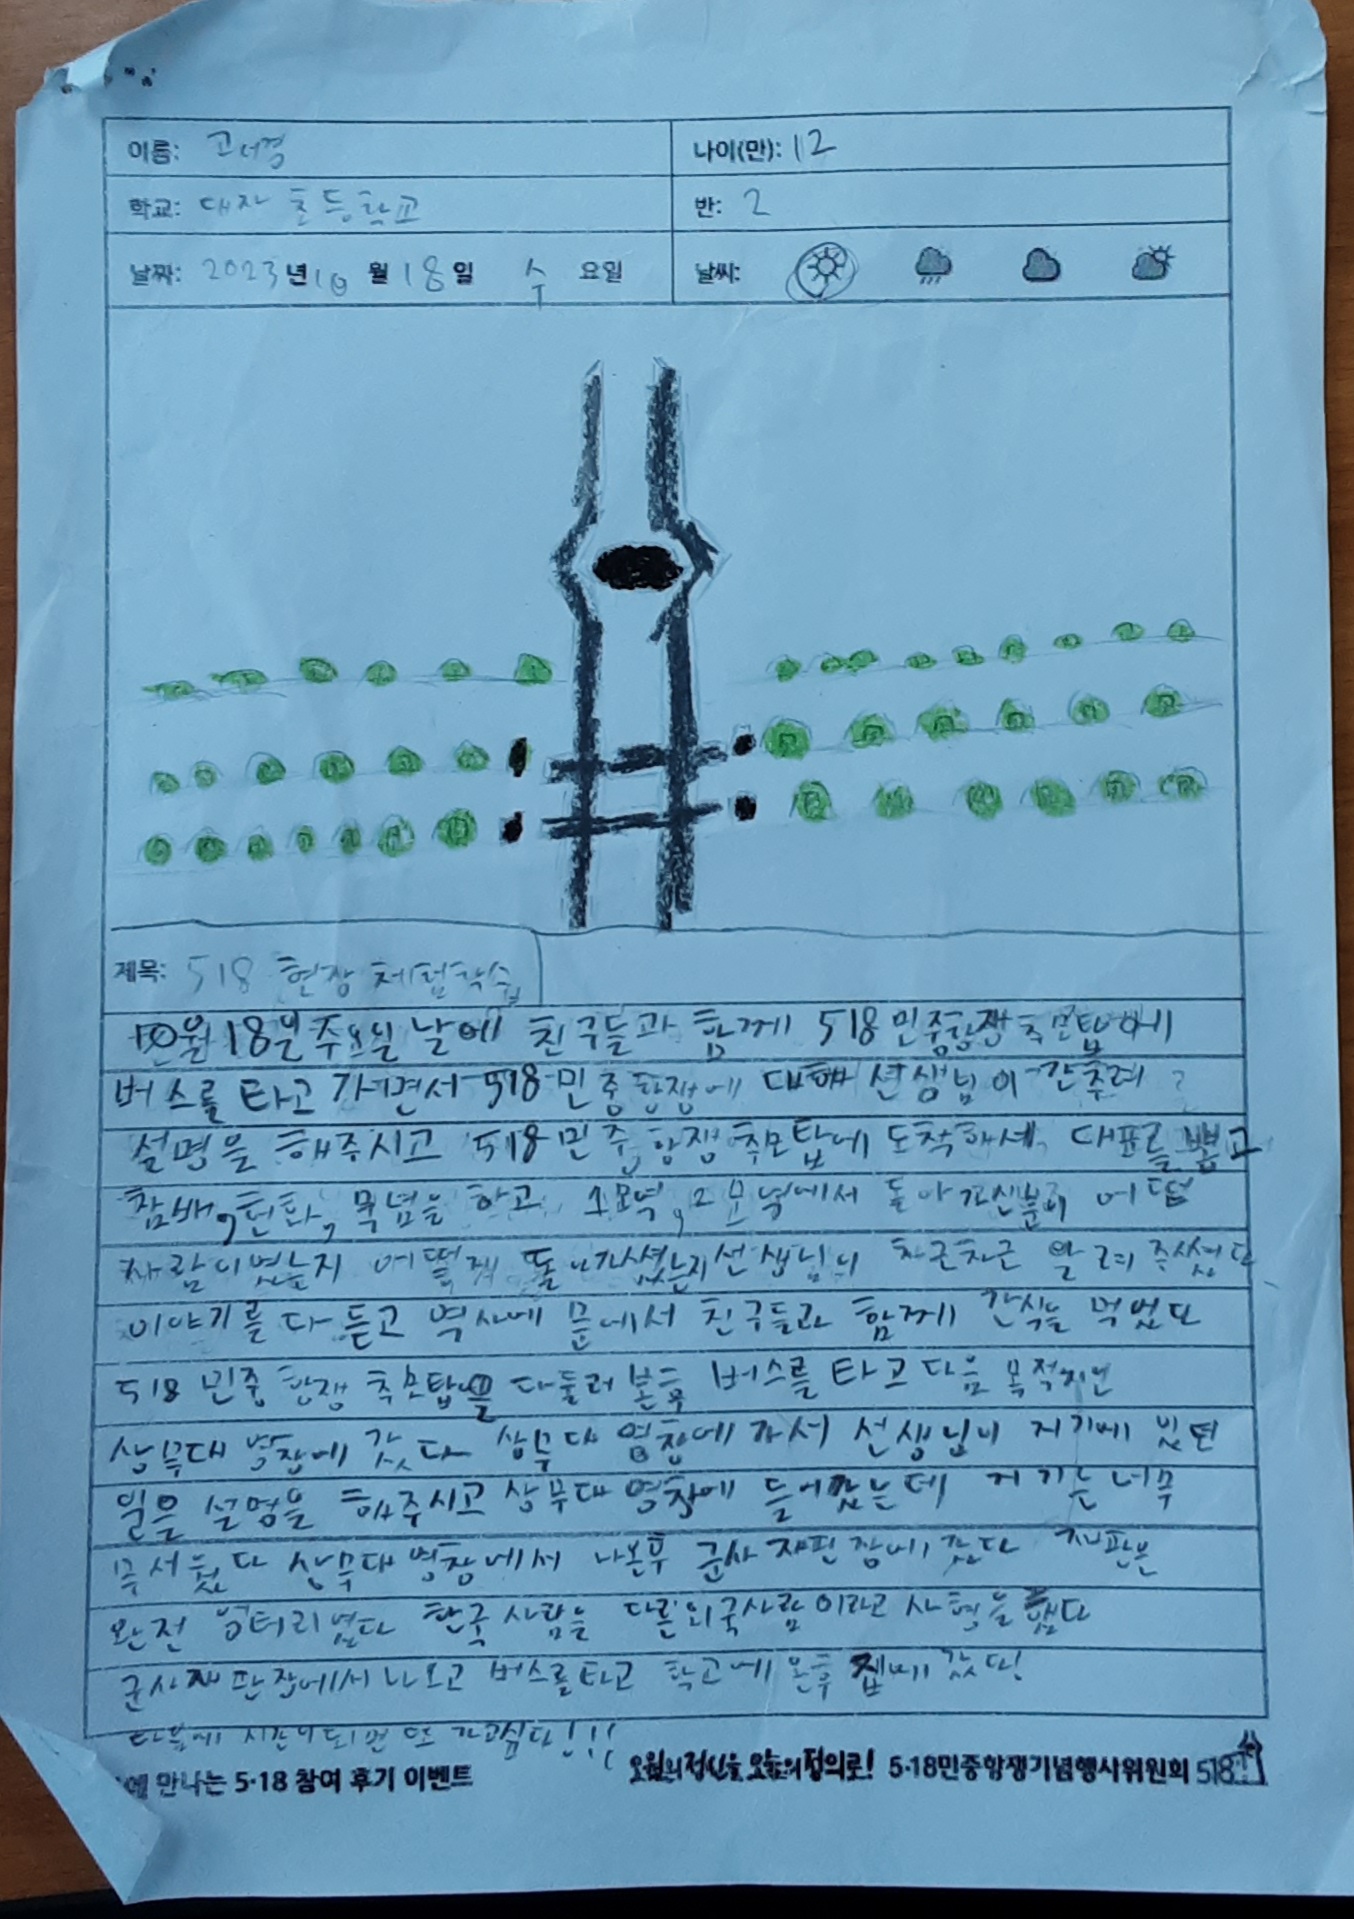 이름: 고서경
나이(만): 12
학교: 대자 초등학교
반: 2
날짜: 2023년 10월 18일 수 요일
날씨:
제목: 518 현장 체험학습
10월 18일 수요일 날에 친구들과 함께 518 민중항쟁 추모탑에
버스를 타고 가면서 518 민중항쟁에 대해 선생님이 간추려
설명을 해주시고 518 민중항쟁 추모탑에 도착해서 대표를 뽑고
참배, 헌화, 묵념을 하고 1묘역, 2묘역에서 돌아가신분이 어떤
사람이였는지 어떻게 돌아가셨는지 선생님이 차근차근 알려 주셨다
이야기를 다 듣고 역사에 문에서 친구들과 함께 간식을 먹었다
518 민중항쟁 추모탑을 다 둘러본 후 버스를 타고 다음 목적지인
상무대 영창에 갔다 상무대 영창에 가서 선생님이 저기에 있던
일을 설명을 해주시고 상무대 영창에 들어갔는데 거기는 너무
무서웠다 상무대 영창에서 나온후 군사 재판장에 갔다 재판은
완전 엉터리였다 한국 사람을 다른 외국사람이라고 사형을 했다
군사재판장에서 나오고 버스를 타고 학교에 온후 집에 갔다!
다음에 시간이 되면 또 가고싶다!!!
에 만나는 5·18 참여 후기 이벤트
오월의 정신을 오늘의 정의로! 5·18민중항쟁기념행사위원회 518